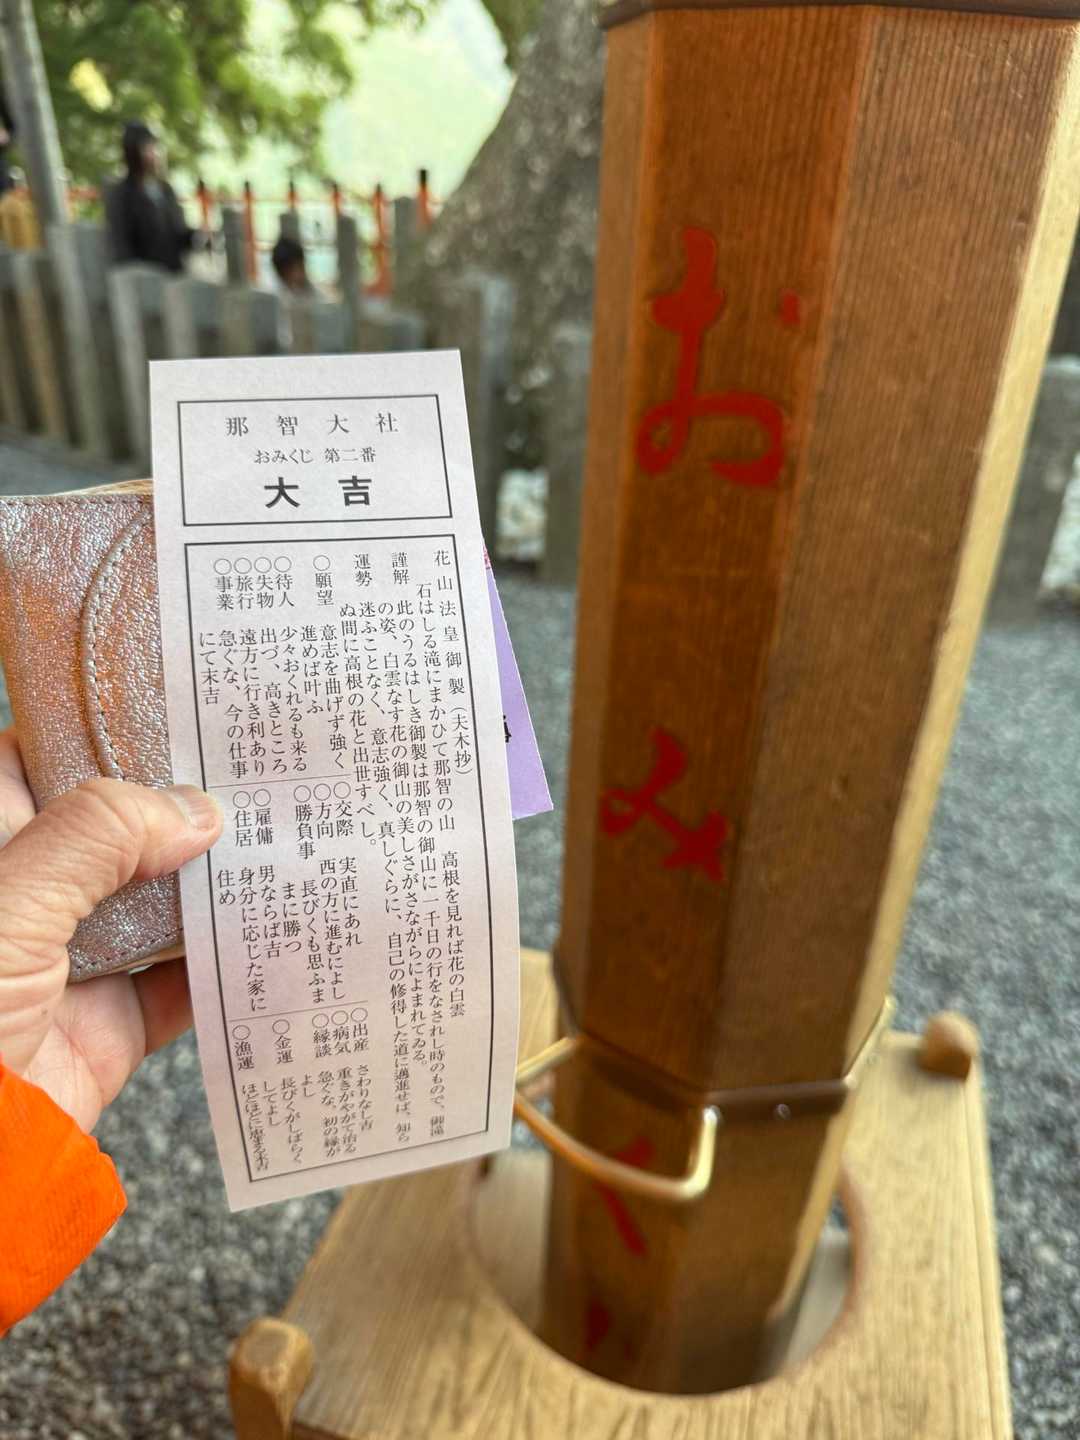 那智大社
おみくじ 第二番
大吉
花山法皇御製（夫木抄）
石はしる滝にまかひて那智の山 高根を見れば花の白雲
謹解 此のうるはしき御製は那智の御山に一千日の行をなされし時のもので、御滝
の姿、白雲なす花の御山の美しさがさながらによまれてゐる。
運勢 迷ふことなく、意志強く、真しぐらに、自己の修得した道に邁進せば、知ら
ぬ間に高根の花と出世すべし。
○願望 意志を曲げず強く
進めば叶ふ
○待人 少々おくれるも来る
○失物 出づ、高きところ
○旅行 遠方に行き利あり
○事業 急ぐな、今の仕事
にて末吉
○交際 実直にあれ
○方向 西の方に進むによし
○勝負事 長びくも思ふま
まに勝つ
○雇傭 男ならば吉
○住居 身分に応じた家に
住め
○出産 さわりなし吉
○病気 重きがやがて治る
○縁談 急ぐな、初の縁が
よし
○金運 長びくがしばらく
してよし
○漁運 ほどほどに恵まる末吉
おみく